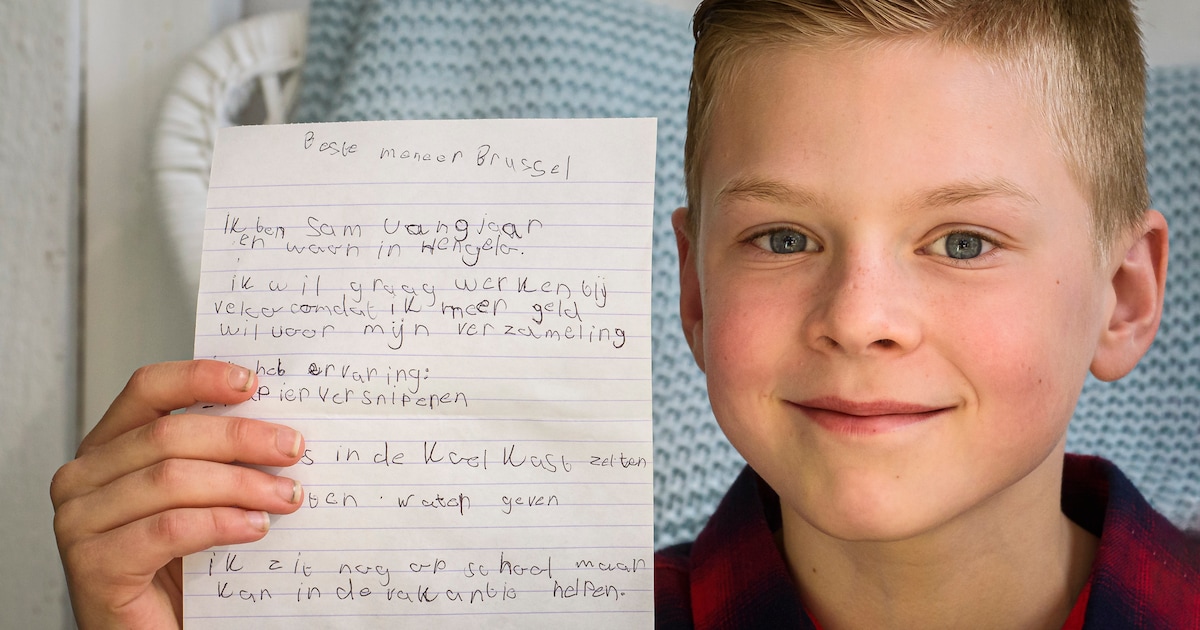 Beste meneer Brussel
Ik ben Sam van 9 jaar
en woon in Hengelo.
ik wil graag werken bij
omdat ik meer geld
wil voor mijn verzameling
heb ervaring:
versniperen
in de koel kast zetten
water geven
ik zit nog op school maar
kan in de vakantie helpen.